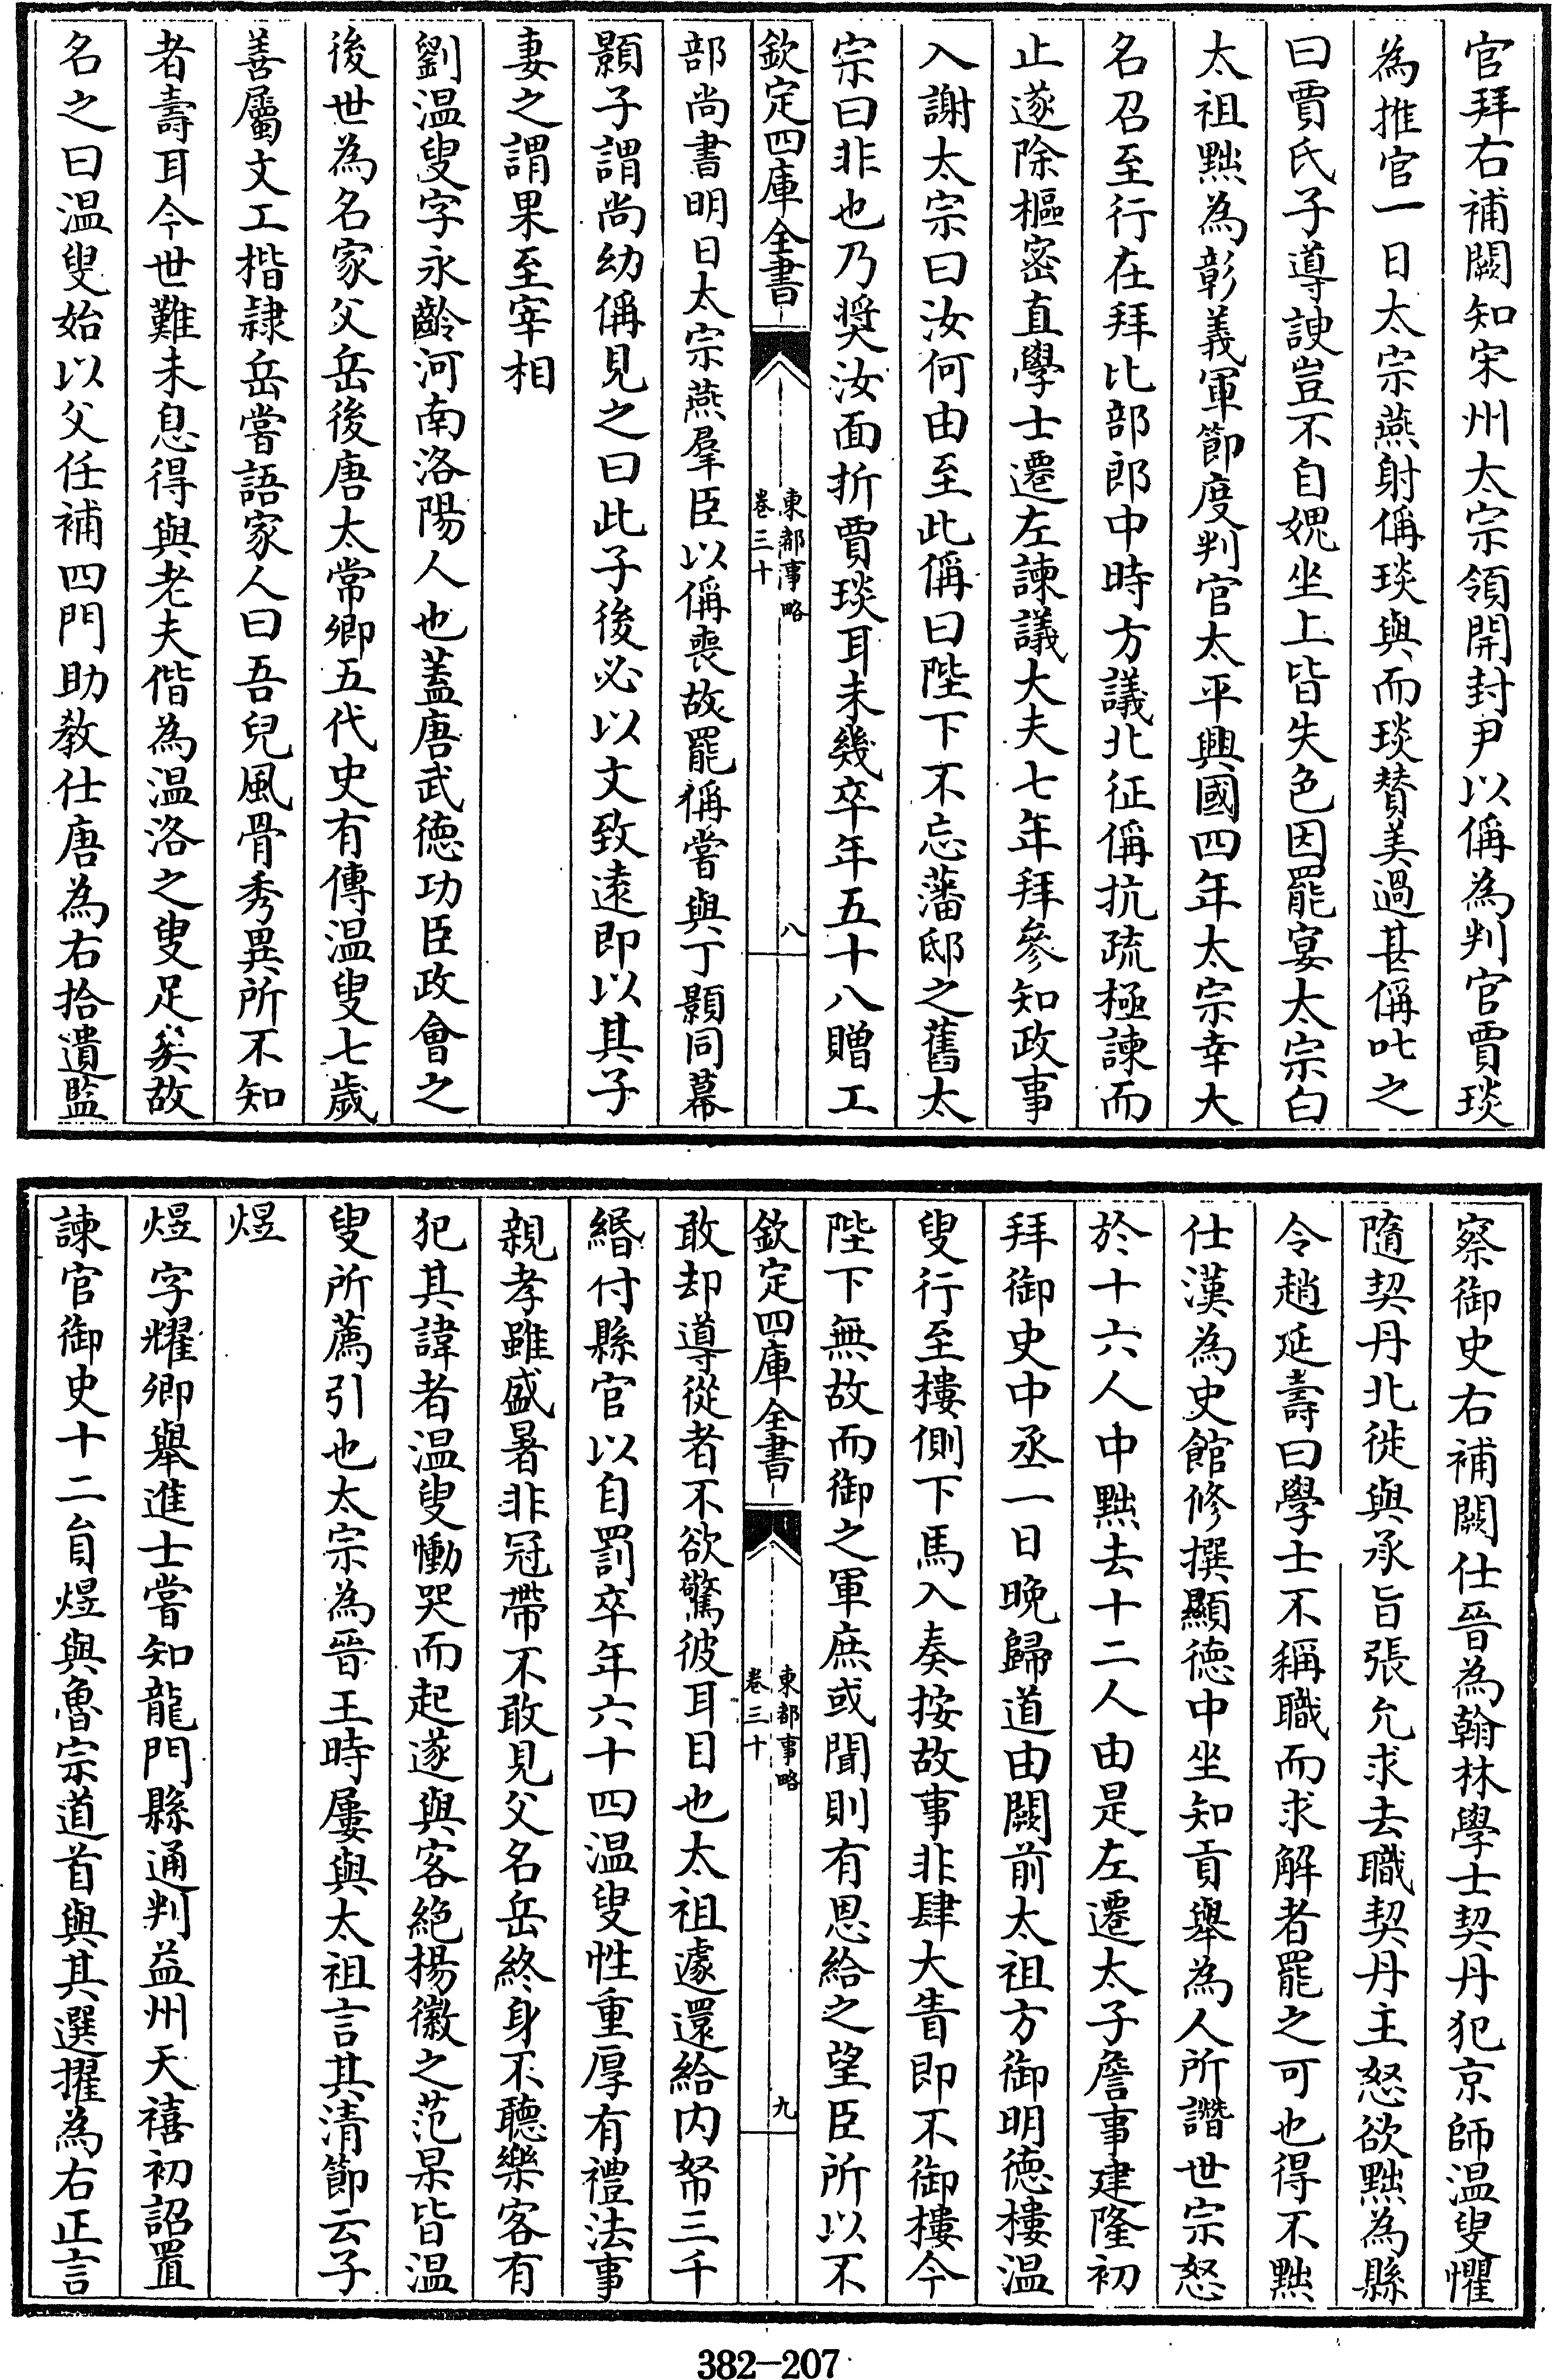 官拜右補闕知宋州太宗領開封尹以偁為判官賈琰
為推官一日太宗燕射偁琰與而琰賛美過甚偁叱之
曰賈氏子導諛豈不自媿坐上皆失色因罷宴太宗白
太祖黜為彰義軍節度判官太平興國四年太宗幸大
名召至行在拜比部郎中時方議北征偁抗疏極諫而
止遂除樞密直學士遷左諫議大夫七年拜參知政事
入謝太宗曰汝何由至此偁曰陛下不忘藩邸之舊太
宗曰非也乃奬汝面折賈琰耳未幾卒年五十八贈工
欽定四庫全書
東都事略
卷三十
八
部尚書明日太宗燕羣臣以偁喪故罷稱嘗與丁顥同幕
顥子謂尚幼偁見之曰此子後必以文致遠即以其子
妻之謂果至宰相
劉温叟字永齡河南洛陽人也蓋唐武徳功臣政會之
後世為名家父岳後唐太常卿五代史有傳温叟七歲
善屬文工楷隷岳嘗語家人曰吾兒風骨秀異所不知
者壽耳今世難未息得與老夫偕為温洛之叟足矣故
名之曰温叟始以父任補四門助教仕唐為右拾遺監
察御史右補闕仕晉為翰林學士契丹犯京師温叟懼
隨契丹北徙與承旨張允求去職契丹主怒欲黜為縣
令趙延壽曰學士不稱職而求解者罷之可也得不黜
仕漢為史館修撰顯徳中坐知貢舉為人所譖世宗怒
於十六人中黜去十二人由是左遷太子詹事建隆初
拜御史中丞一日晚歸道由闕前太祖方御明徳樓温
叟行至樓側下馬入奏按故事非肆大眚即不御樓今
陛下無故而御之軍庶或聞則有恩給之望臣所以不
欽定四庫全書
東都事略
卷三十
九
敢却導從者不欲驚彼耳目也太祖遽還給内帑三千
緡付縣官以自罰卒年六十四温叟性重厚有禮法事
親孝雖盛暑非冠帶不敢見父名岳終身不聽樂客有
犯其諱者温叟慟哭而起遂與客絶楊徽之范杲皆温
叟所薦引也太宗為晉王時屢與太祖言其清節云子
煜
煜字耀卿舉進士嘗知龍門縣通判益州天禧初詔置
諫官御史十二員煜與魯宗道首與其選擢為右正言
382-207